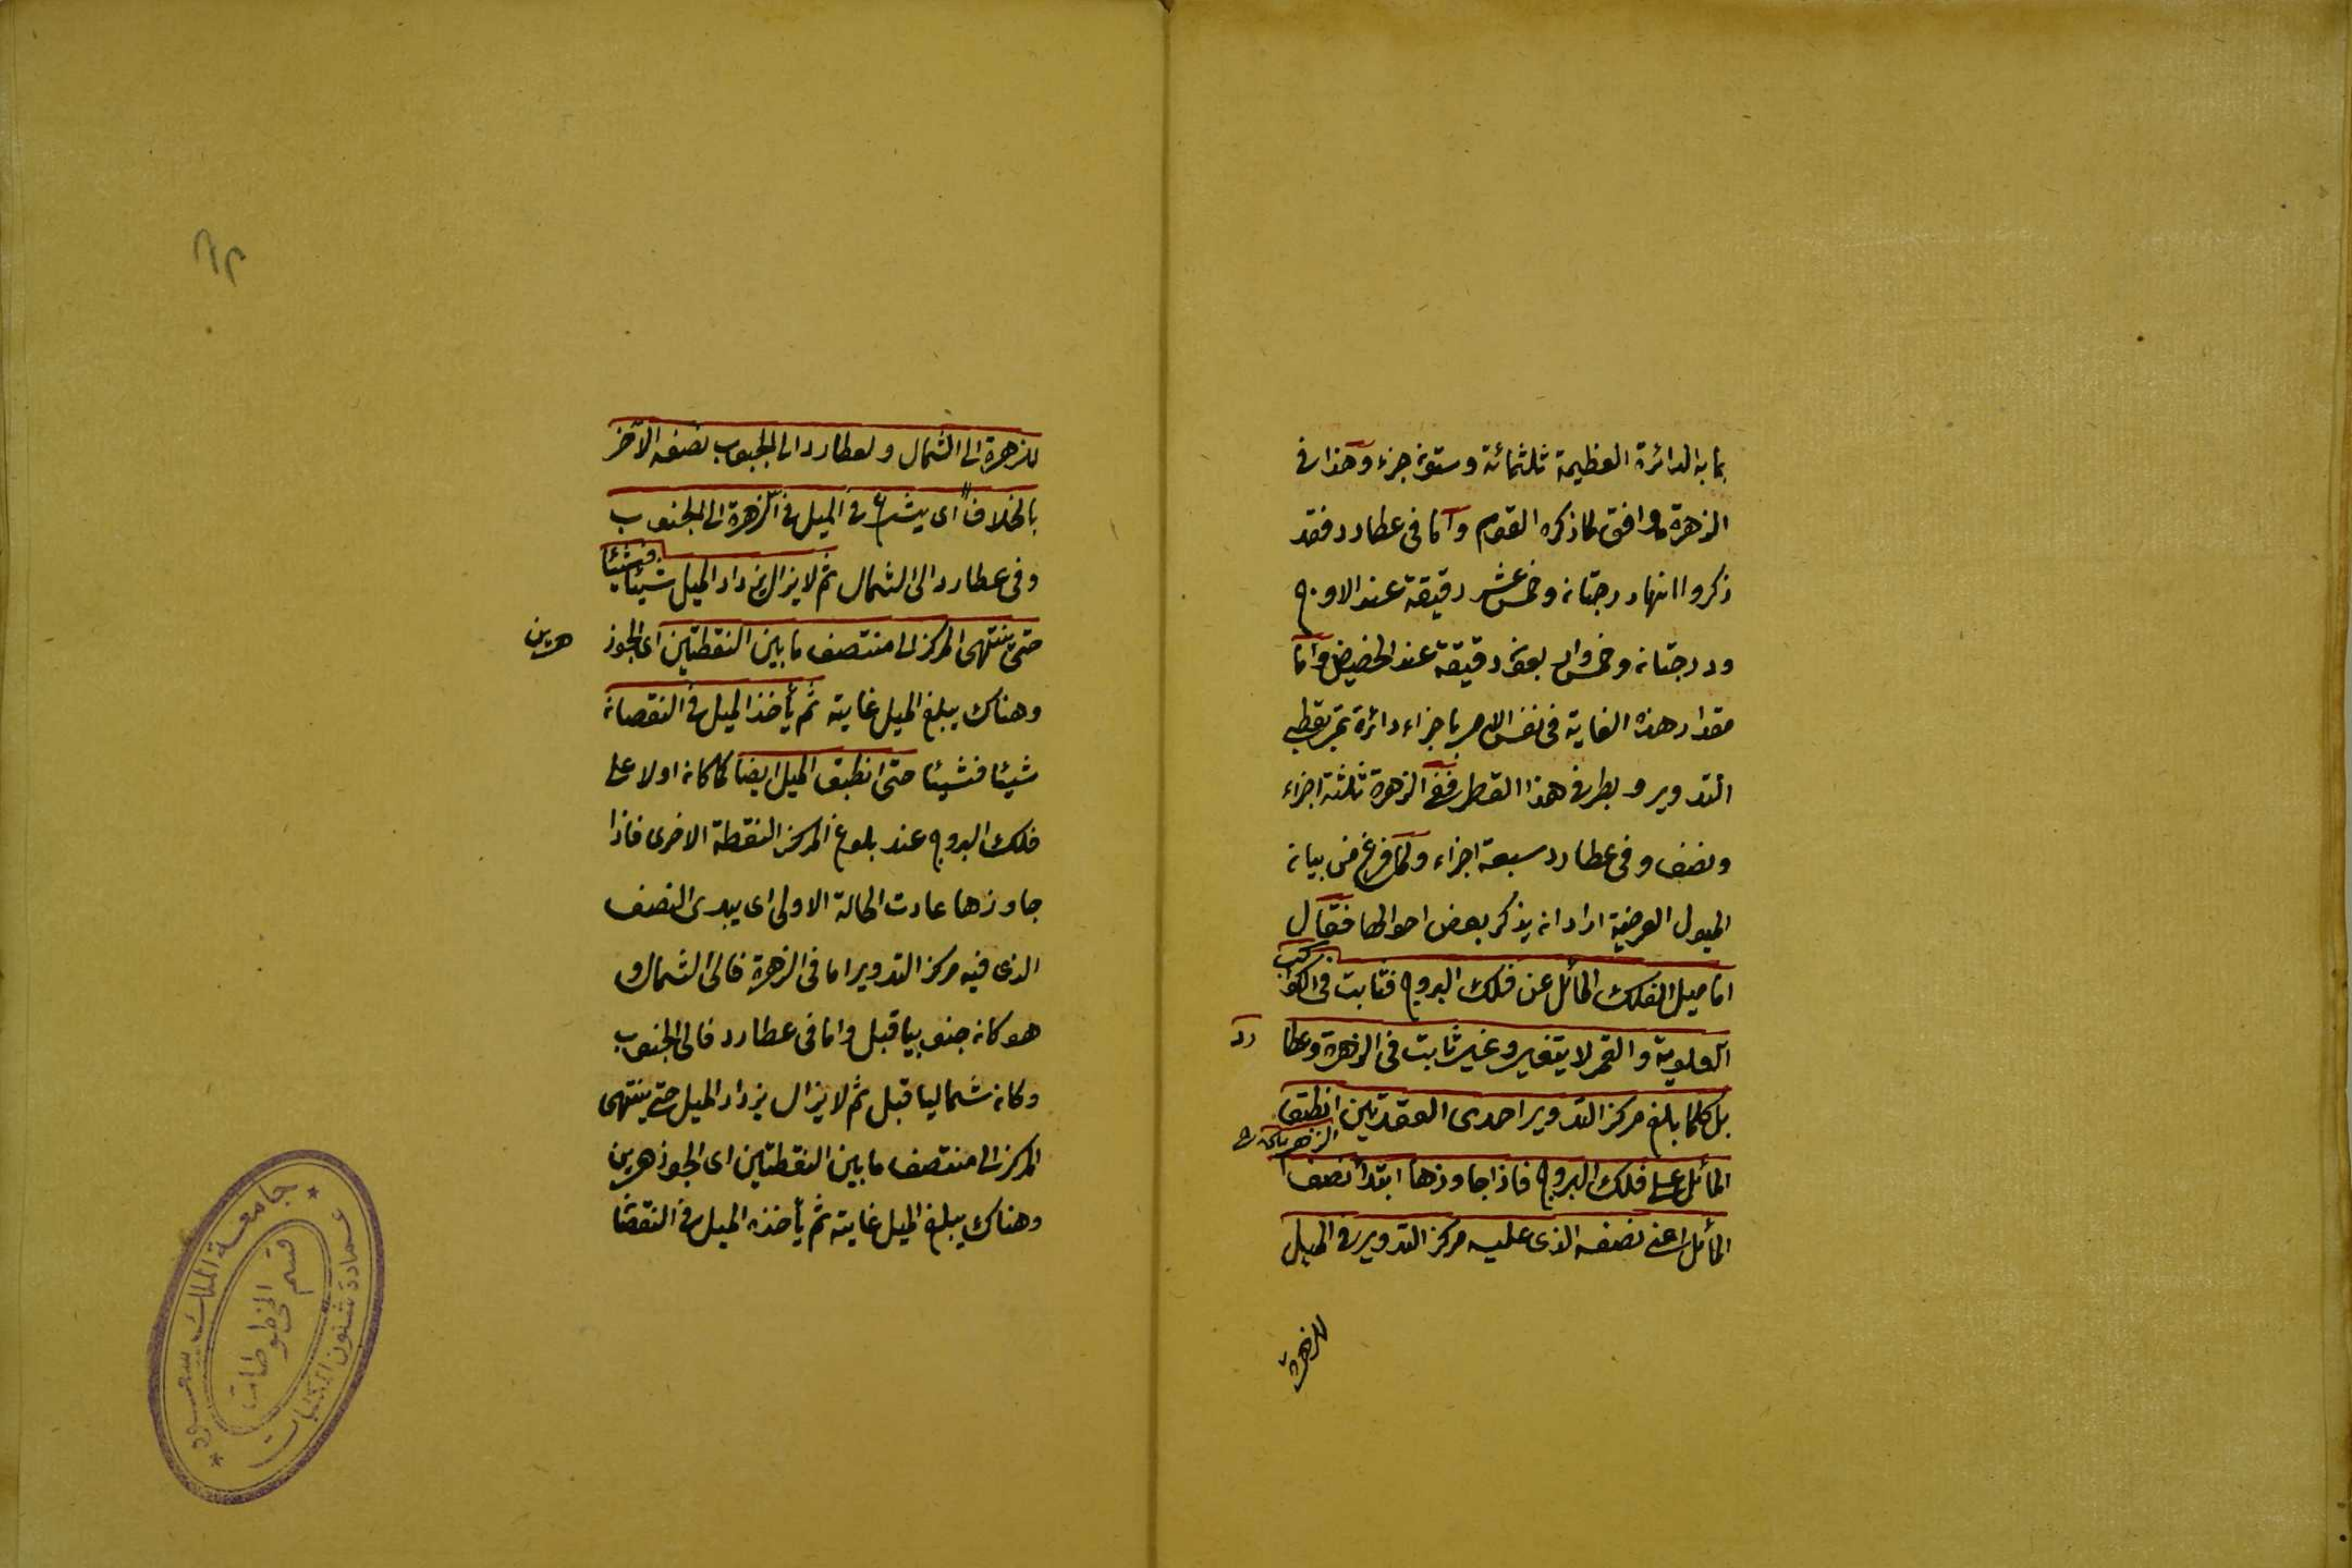 بما به الدائرة العظيمة ثلثمائة وستون جزء وهذا في
الزهرة موافق لما ذكره القوم وأما في عطارد فقد
ذكروا انها درجتان وخمس عشر دقيقة عند الاوج
ودرجتان وخمس واربعون دقيقة عند الحضيض وأما
مقدار هذه الغاية في نفس الامر باجزاء دائرة تمر بقطبي
التدوير وبطرفي هذا القطر ففي الزهرة ثلثة اجزاء
ونصف وفي عطارد سبعة اجزاء ولما فرغ من بيان
الميول العرضية اراد ان يذكر بعض احوالها فقال
اما ميل الفلك المائل عن فلك البروج فثابت في الكواكب
العلوية والقمر لا يتغير وغير ثابت في الزهرة وعطارد
بل كلما بلغ مركز التدوير احدى العقدتين انطبق
المائل على فلك البروج فاذا جاوزها ابتدأ نصف
المائل اعني نصفه الذي عليه مركز التدوير في الميل
للزهرة
للزهرة الى الشمال ولعطارد الى الجنوب نصفه الآخر
بالخلاف اى يشرع في الميل في الزهرة الى الجنوب
وفي عطارد الى الشمال ثم لا يزال يزداد الميل شيئا فشيئا
حتى ينتهى المركز الى منتصف ما بين النقطتين اى الجوزهرين
وهناك يبلغ الميل غايته ثم يأخذ الميل في النقصان
شيئا فشيئا حتى انطبق الميل ايضا كما كان اولا على
فلك البروج عند بلوغ المركز النقطة الاخرى فاذا
جاوزها عادت الحالة الاولى اى يبدى النصف
الذى فيه مركز التدوير اما في الزهرة فالى الشمال و
هو كان جنوبيا قبل واما في عطارد فالى الجنوب
وكان شماليا قبل ثم لا يزال يزداد الميل حتى ينتهى
المركز الى منتصف ما بين النقطتين اى الجوزهرين
وهناك يبلغ الميل غايته ثم يأخذه الميل في النقصا
جامعة الملك سعود
قسم المخطوطات
عمادة شئون المكتبات